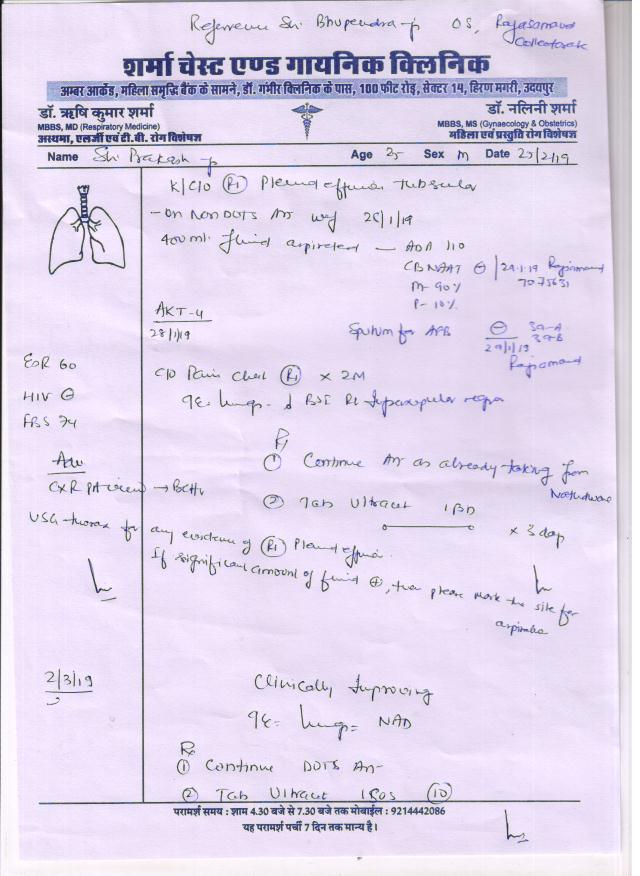 Reference Sh. Bhupendra ji OS, Rajasamand
Collectorate
शर्मा चेस्ट एण्ड गायनिक क्लिनिक
अम्बर आर्केड, महिला समृद्धि बैंक के सामने, डॉ. गंभीर क्लिनिक के पास, 100 फीट रोड़, सेक्टर 14, हिरण मगरी, उदयपुर
डॉ. ऋषि कुमार शर्मा
MBBS, MD (Respiratory Medicine)
अस्थमा, एलर्जी एवं टी.बी. रोग विशेषज्ञ
डॉ. नलिनी शर्मा
MBBS, MS (Gynaecology & Obstetrics)
महिला एवं प्रसुति रोग विशेषज्ञ
Name Sh. Prakash ji Age 25 Sex M Date 25/2/19
K/C/O Rt Pleural effusion tubercular
- On Non DOTS ATT wef 28/1/19
400 ml fluid aspirated — ADA 110
CBNAAT ⊖ 29.1.19 Rajsamand
M- 90%
P- 10%
AKT-4
28/1/19
Sputum for AFB ⊖
29/1/19
Rajsamand
ESR 60
HIV ⊖
FBS 74
C/O Pain Chest Rt × 2M
Rx
① Continue ATT as already taking from
Nathdwara
② Tab Ultracet 1 BD
× 3 days
Adv
CXR PA view
USG thorax for any evidence of Rt Pleural effusion.
If significant amount of fluid ⊕, then please mark the site for
aspiration
2/3/19
Clinically Improving
Lungs = NAD
Rx
① Continue DOTS ATT
② Tab Ultracet 1 SOS ⑩
परामर्श समय : शाम 4.30 बजे से 7.30 बजे तक मोबाईल : 9214442086
यह परामर्श पर्ची 7 दिन तक मान्य है।